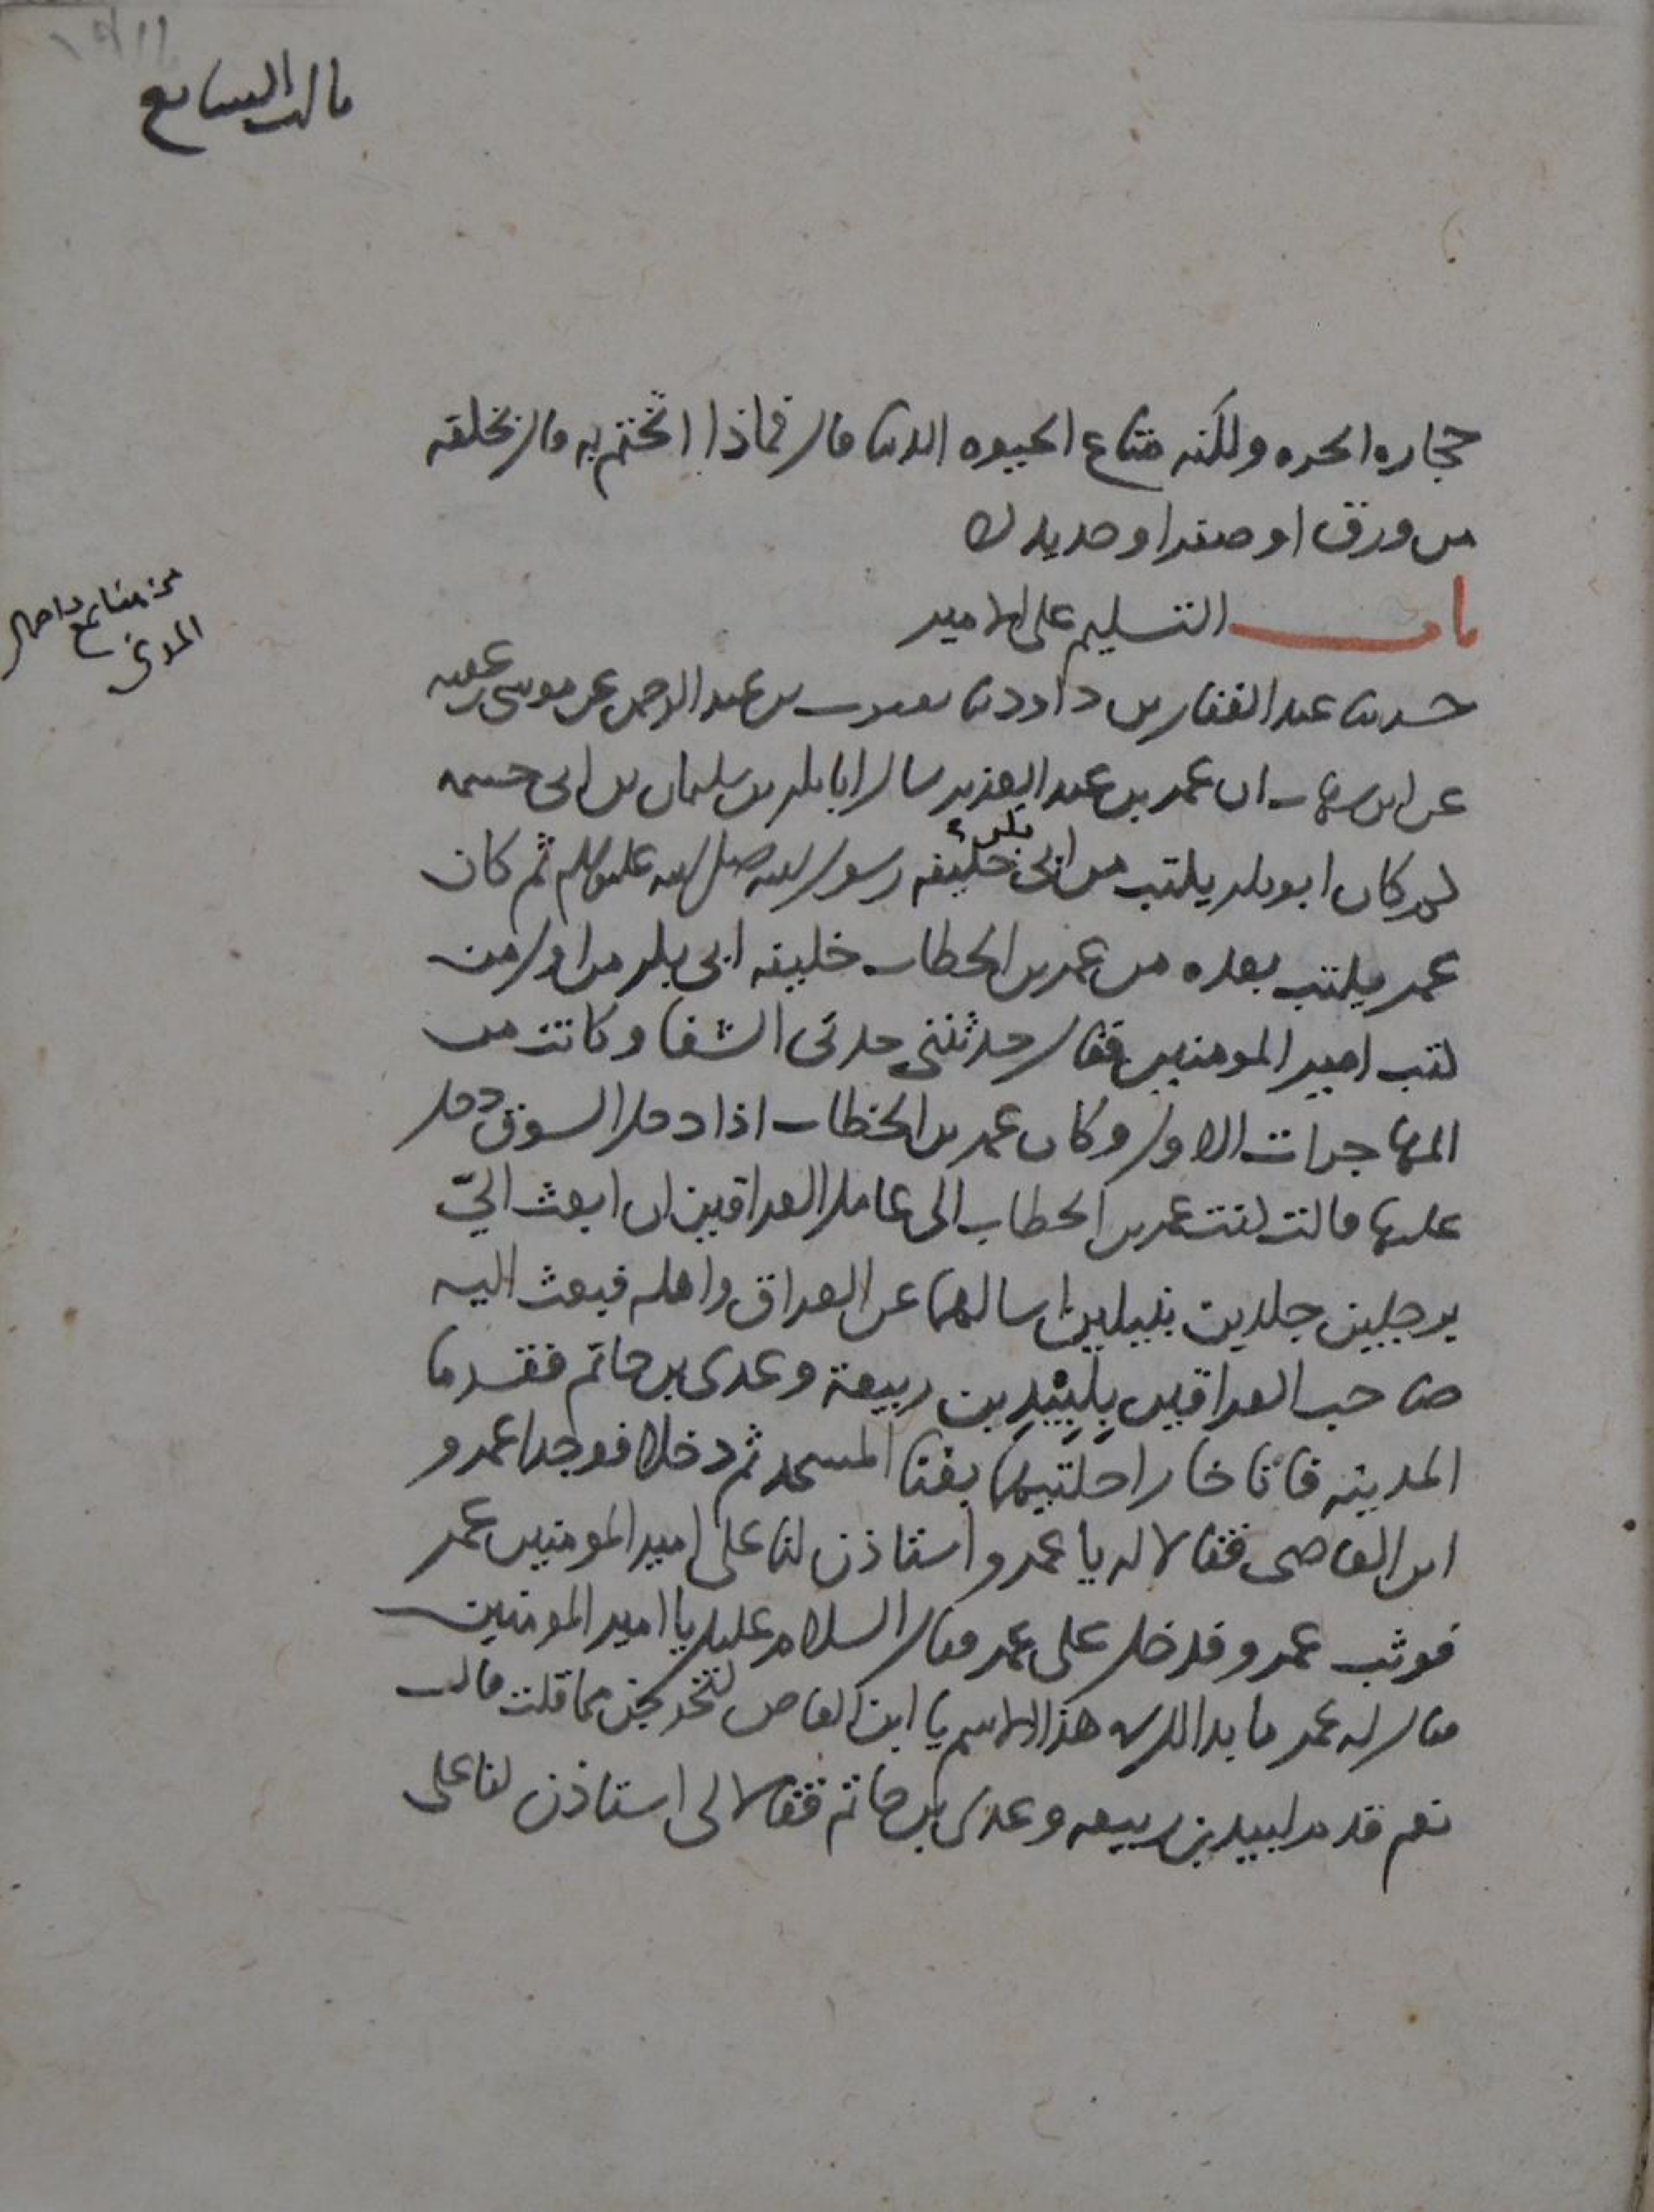 حجاره الحره ولكنه متاع الحيوه الدنيا قال فماذا اتختم به قال بخلقه
من ورق او صفر او حديد
باب التسليم على الامير
حدثنا عبد الغفار بن داود نا يعقوب بن عبد الرحمن عن موسى بن عقبه
عن ابن شهاب ان عمر بن عبد العزيز سال ابا بكر بن سليمان بن ابى حثمه
لم كان ابو بكر يكتب من ابى بكر خليفه رسول الله صلى الله عليه وسلم ثم كان
عمر يكتب بعده من عمر بن الخطاب خليفه ابى بكر من اول من
كتب امير المومنين فقال حدثتنى جدتى الشفا وكانت من
المهاجرات الاول وكان عمر بن الخطاب اذا دخل السوق دخل
عليها قالت كتب عمر بن الخطاب الى عامل العراقين ان ابعث اليّ
برجلين جلدين نبيلين اسالهما عن العراق واهله فبعث اليه
صاحب العراقين بلبيد بن ربيعة وعدى بن حاتم فقدما
المدينه فاناخا راحلتيهما بفنا المسجد ثم دخلا فوجدا عمرو
ابن العاصى فقالا له يا عمرو استاذن لنا على امير المومنين عمر
فوثب عمرو فدخل على عمر فقال السلام عليك يا امير المومنين
فقال له عمر ما بدا لك فى هذا الاسم يا ابن العاص لتخرجن مما قلت قال
نعم قدم لبيد بن ربيعه وعدى بن حاتم فقالا لى استاذن لنا على